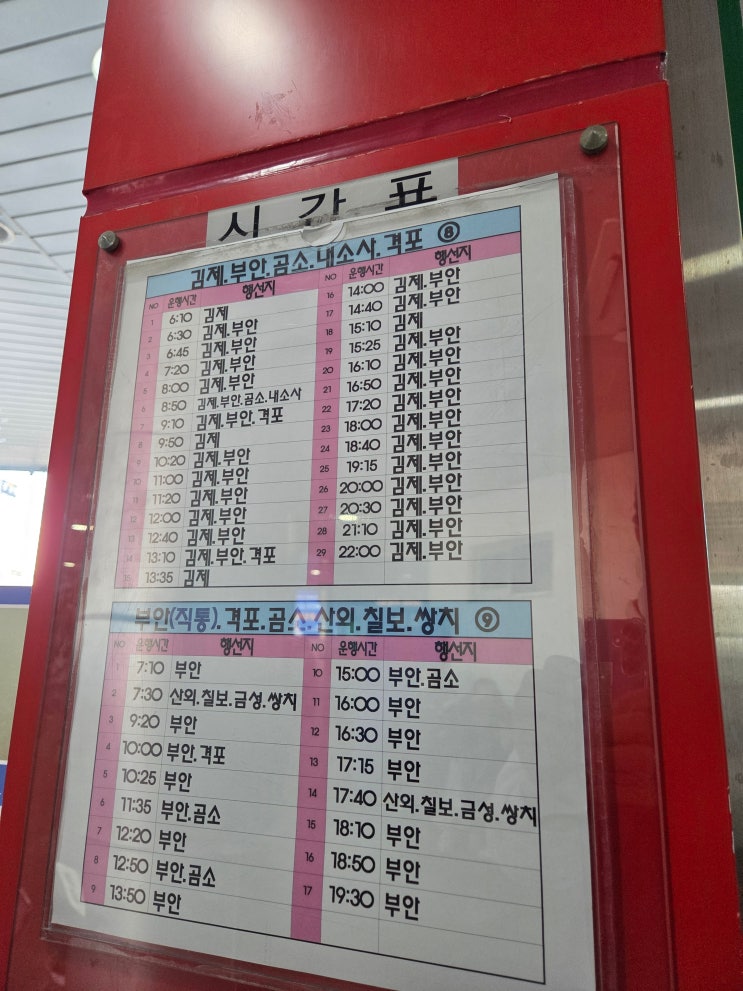 시간표
김제.부안.곰소.내소사.격포 ⑧
NO 운행시간 행선지
1 6:10 김제
2 6:30 김제.부안
3 6:45 김제.부안
4 7:20 김제.부안
5 8:00 김제.부안
6 8:50 김제.부안.곰소.내소사
7 9:10 김제.부안.격포
8 9:50 김제
9 10:20 김제.부안
10 11:00 김제.부안
11 11:20 김제.부안
12 12:00 김제.부안
13 12:40 김제.부안
14 13:10 김제.부안.격포
15 13:35 김제
NO 운행시간 행선지
16 14:00 김제.부안
17 14:40 김제.부안
18 15:10 김제
19 15:25 김제.부안
20 16:10 김제.부안
21 16:50 김제.부안
22 17:20 김제.부안
23 18:00 김제.부안
24 18:40 김제.부안
25 19:15 김제.부안
26 20:00 김제.부안
27 20:30 김제.부안
28 21:10 김제.부안
29 22:00 김제.부안
부안(직통).격포.곰소.산외.칠보.쌍치 ⑨
NO 운행시간 행선지
1 7:10 부안
2 7:30 산외.칠보.금성.쌍치
3 9:20 부안
4 10:00 부안.격포
5 10:25 부안
6 11:35 부안.곰소
7 12:20 부안
8 12:50 부안.곰소
9 13:50 부안
NO 운행시간 행선지
10 15:00 부안.곰소
11 16:00 부안
12 16:30 부안
13 17:15 부안
14 17:40 산외.칠보.금성.쌍치
15 18:10 부안
16 18:50 부안
17 19:30 부안